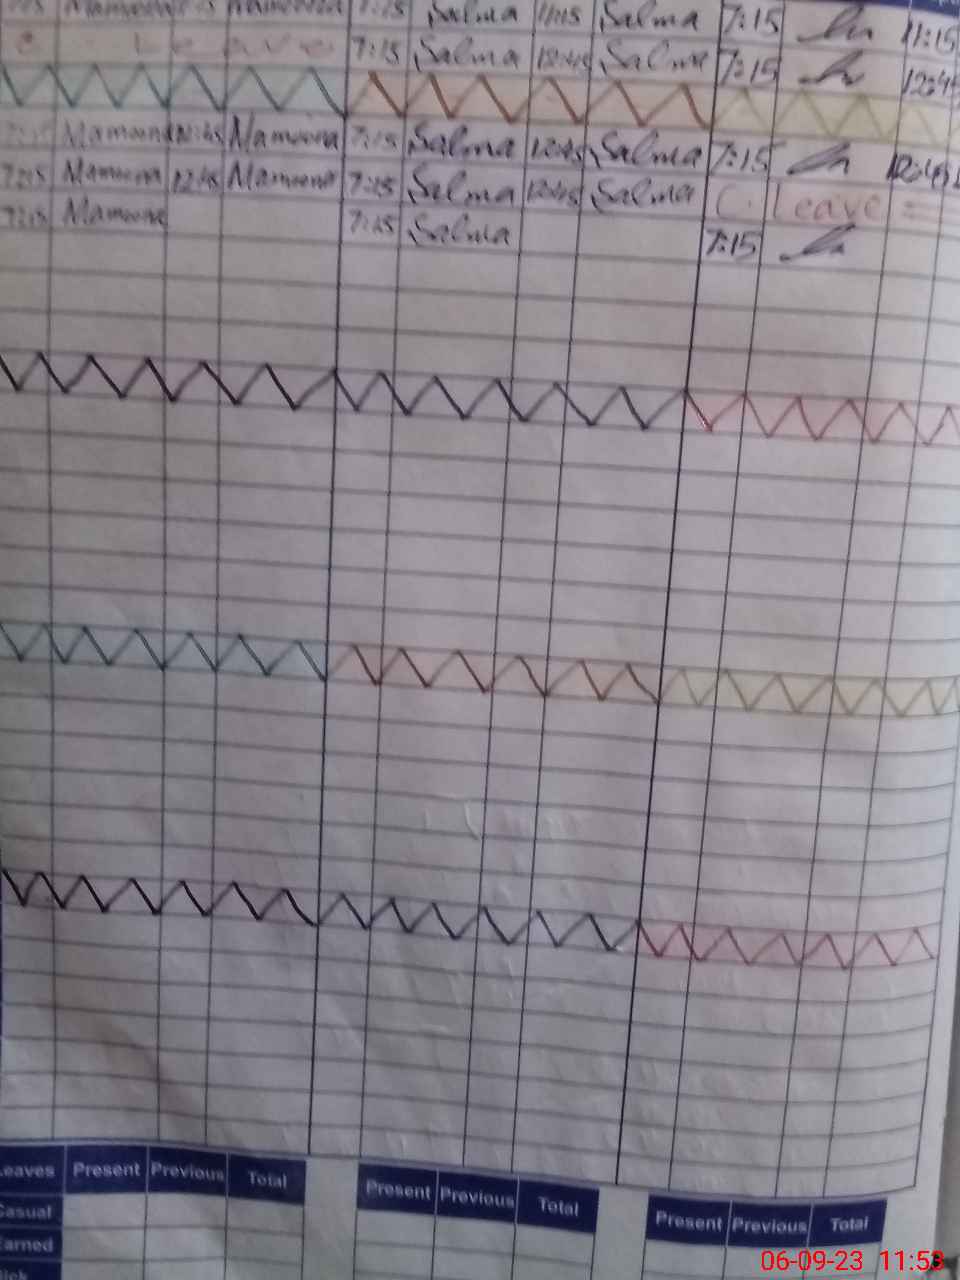 Mamoona Mamoona 7:15 Salma 11:15 Salma 7:15 11:15
C Leave 7:15 Salma 12:45 Salma 7:15 12:45
7:15 Mamoona 12:45 Mamoona 7:15 Salma 12:45 Salma 7:15 12:45
7:15 Mamoona 12:45 Mamoona 7:15 Salma 12:45 Salma C. Leave
7:15 Mamoona 7:15 Salma 7:15
Leaves Present Previous Total Present Previous Total Present Previous Total
Casual
Earned
Sick
06-09-23 11:53